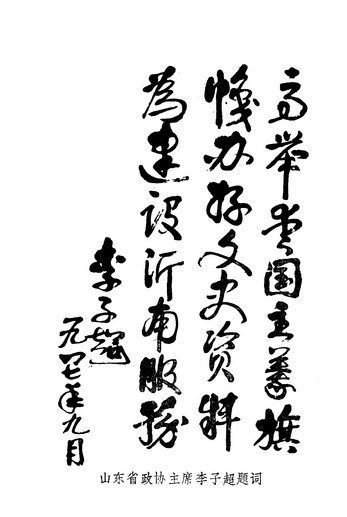 高举爱国主义旗
帜办好文史资料
为建设沂南服务
李子超
一九八七年九月
山东省政协主席李子超题词